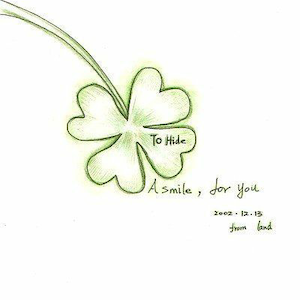 To Hide
A smile, for you
2002.12.13
from land